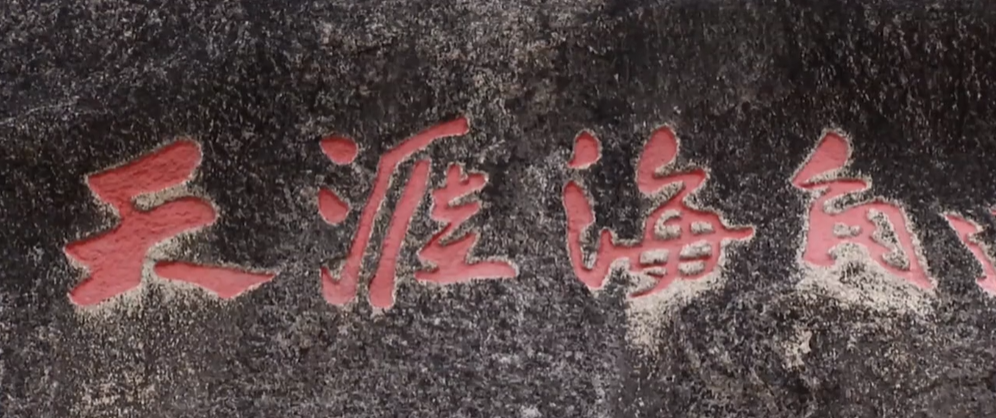 天涯海角